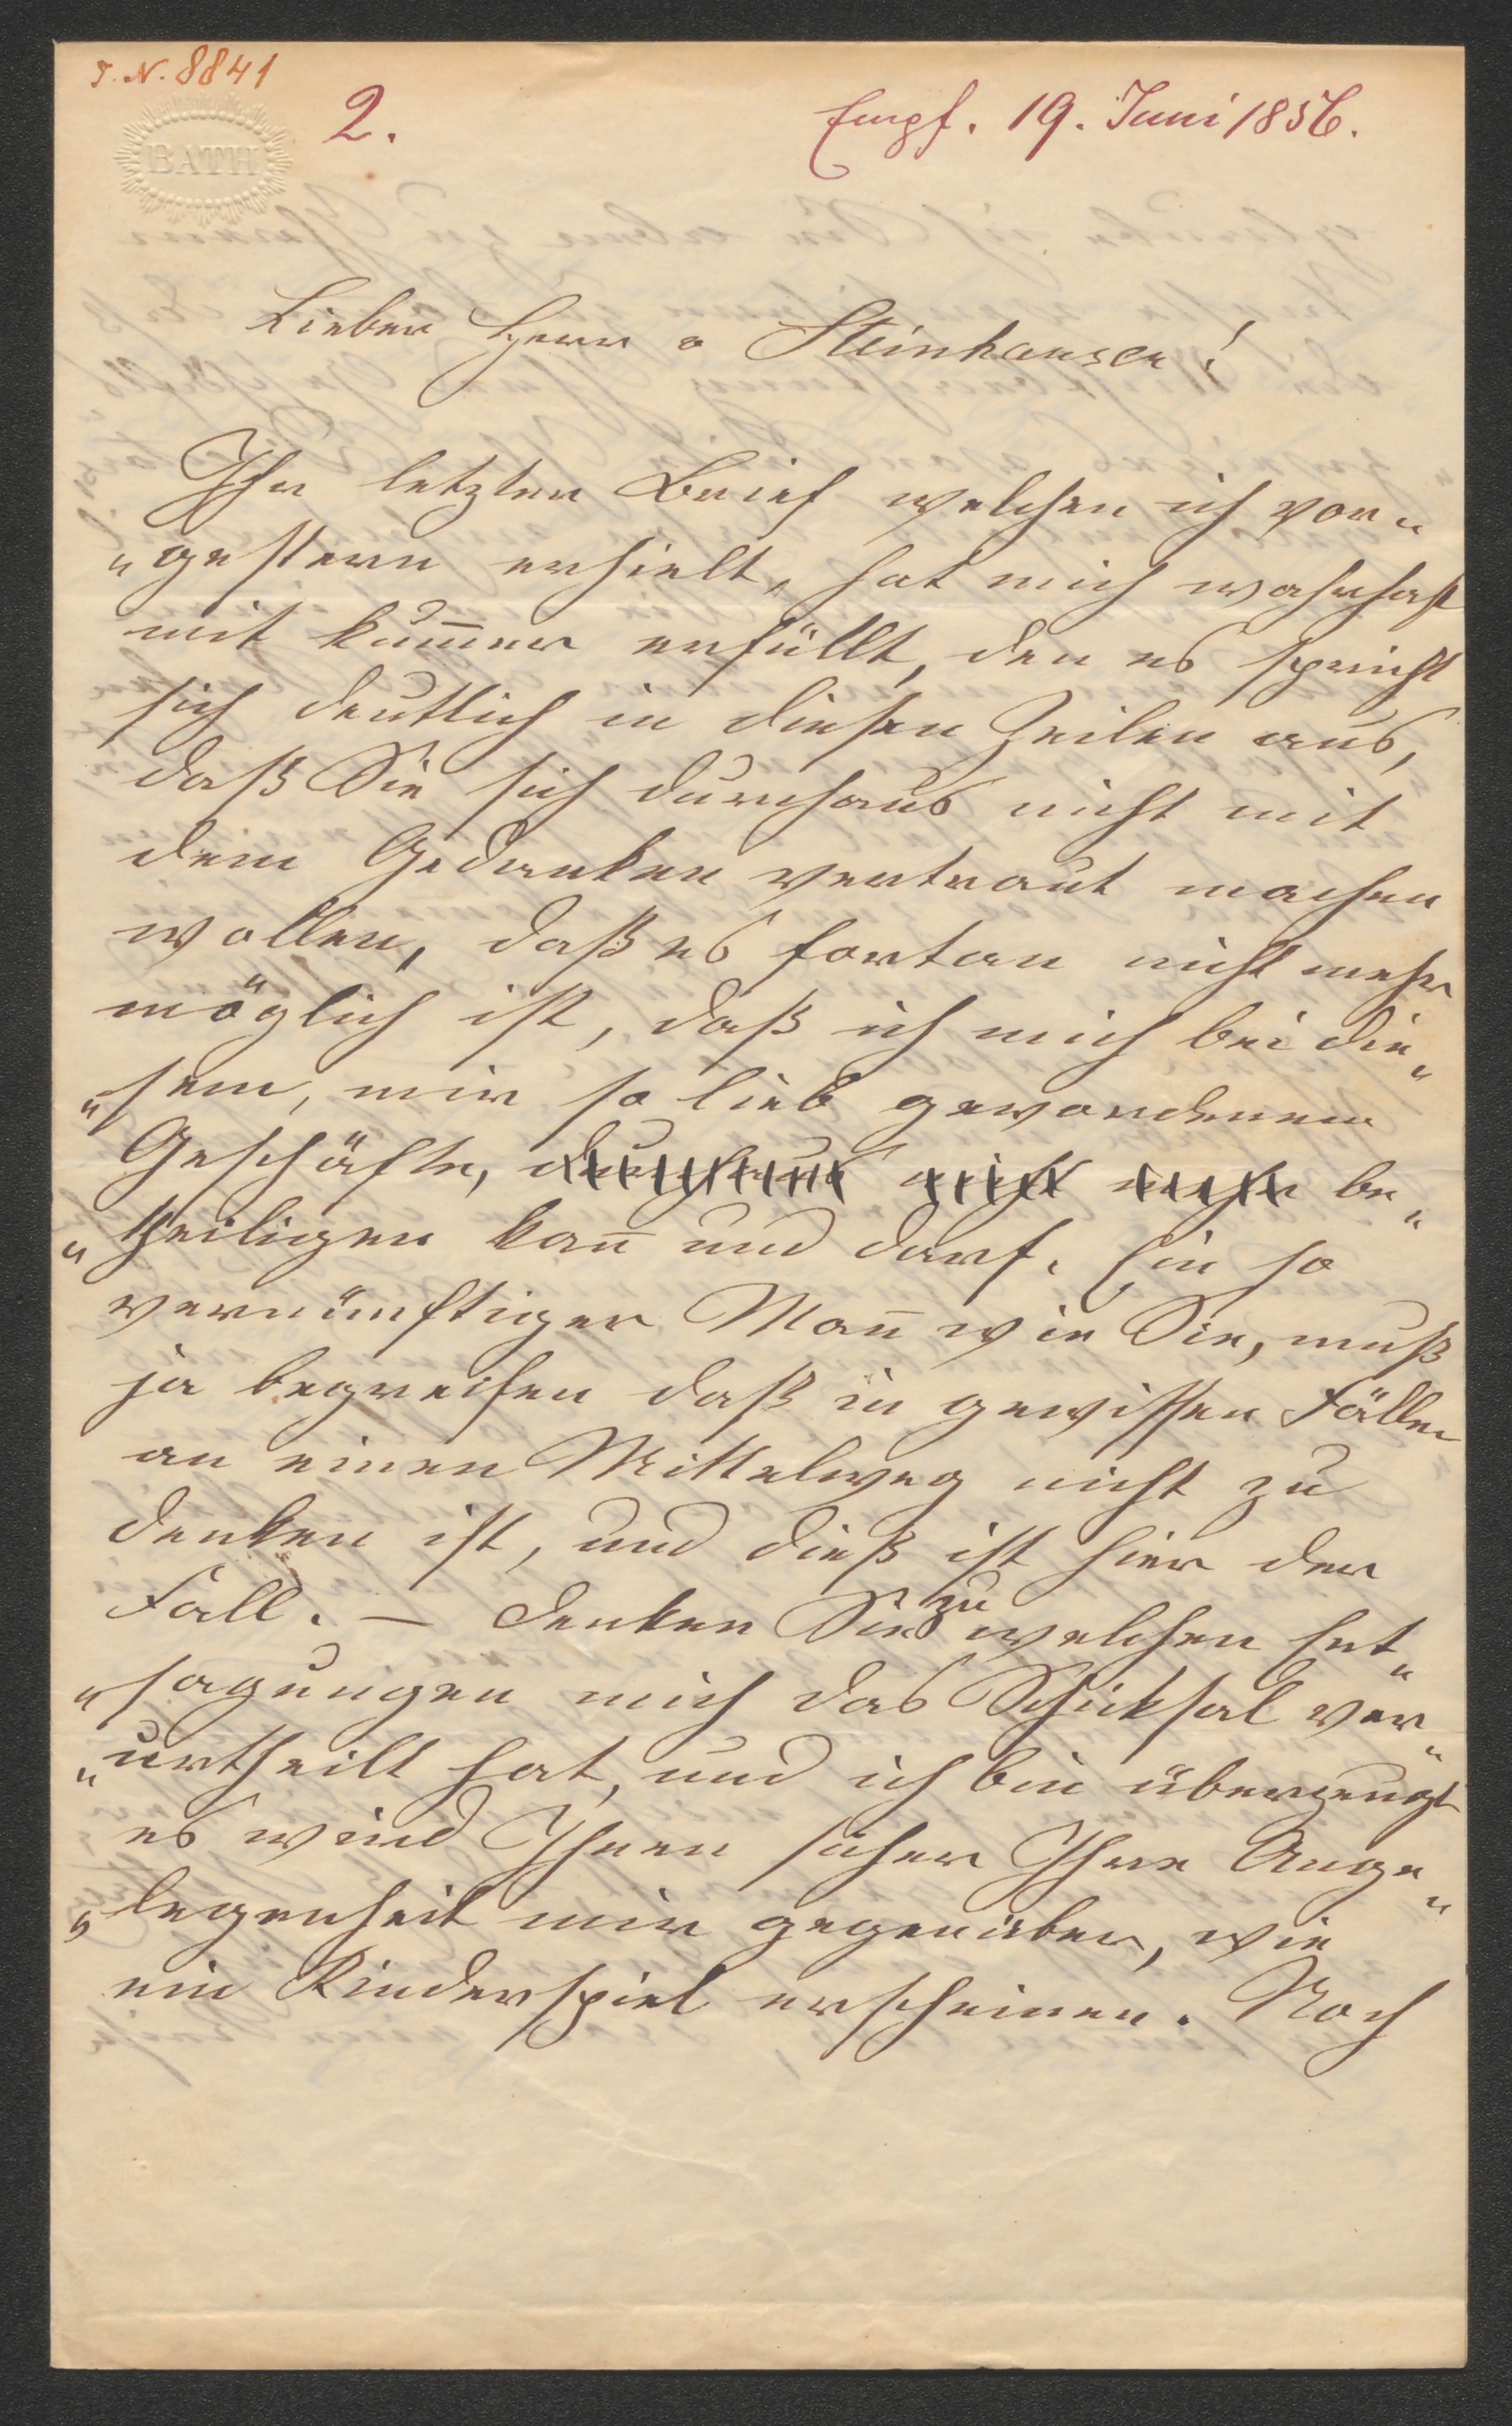 J. N. 8841
BATH
2.
Empf. 19. Juni 1856.
Lieber Herr v Steinhauser!
Ihr letzter Brief welchen ich vor„
„gestern erhielt, hat mich wahrhaft
mit Kum̅er erfüllt, den es spricht
sich deutlich in diesen Zeilen aus,
daß Sie sich durchaus nicht mit
dem Gedanken vertraut machen
wollen, daß es fortan nicht mehr
möglich ist, daß ich mich bei die„
„sem, mir so lieb gewordenem
Geschäfte, durchaus nicht mehr be„
„theiligen kan̅ und darf. Ein so
vernünftiger Man̅ wie Sie, muß
ja begreifen daß in gewissen Fällen
an einen Mittelweg nicht zu
denken ist, und dieß ist hier der
Fall. — Denken Sie zu welchen Ent„
„sagungen mich das Schicksal ver„
„urtheilt hat, und ich bin überzeugt
es wird Ihnen sicher Ihre Ange„
„legenheit mir gegenüber, wie
ein Kinderspiel erscheinen. Noch